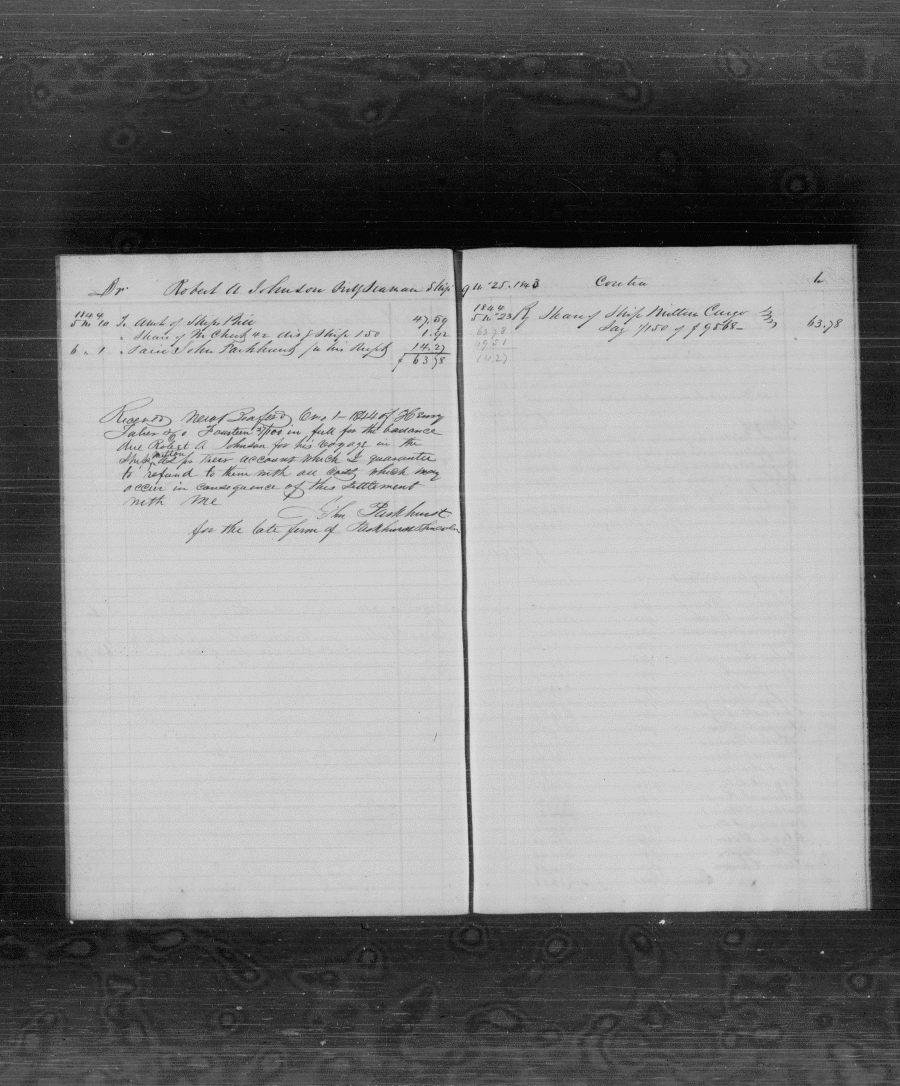 Dr Robert A Johnson Ordy Seaman Ship 9 m 25. 1843 Contra
1844
5 m 10 To Amt of Ships Bill 47.59
" Share of M Chest &c disg Ship 150 1.92
6 " 1 " Paid John Parkhurst pr his Rcpt 14.27
$ 63.78
1844
5 m 23 By Share of Ship Milton Cargo
Lay 1/150 of $ 9568 63.78
63.78
49.51
14.27
Received New Bedford 6 mo 1 1844 of Henry
Taber & Co Fourteen 27/100 in full for the balance
due Robert A Johnson for his voyage in the
Ship Milton pr their account which I guarantee
to refund to them with all cost which may
occur in consequence of this settlement
with me
John Parkhurst
for the late firm of Parkhurst & Lincoln